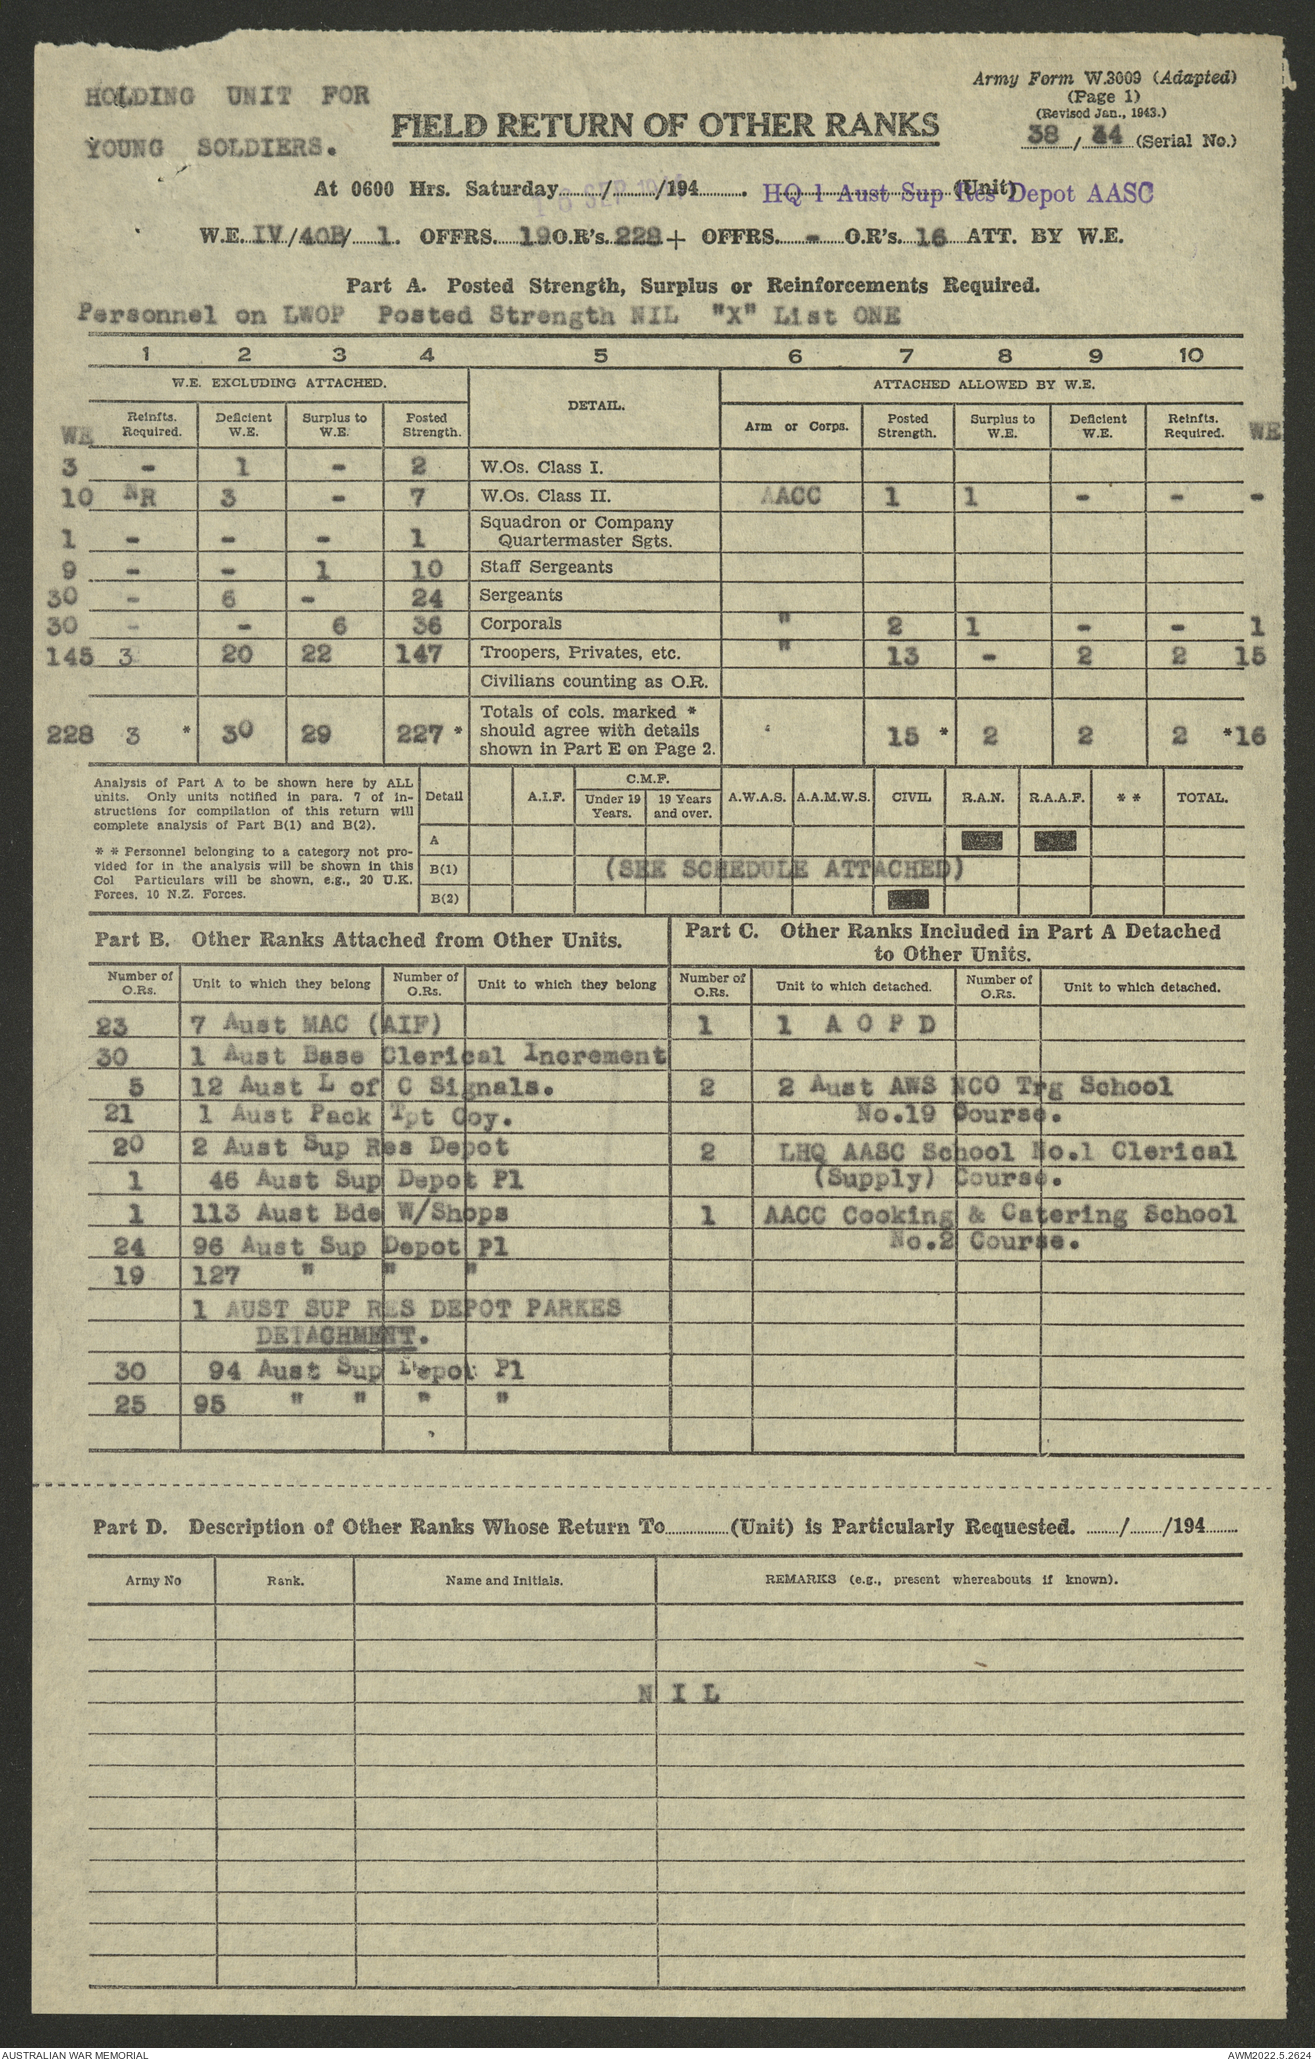 HOLDING UNIT FOR
YOUNG SOLDIERS.
Army Form W.3009 (Adapted)
(Page 1)
(Revised Jan., 1943.)
FIELD RETURN OF OTHER RANKS
38 / (Serial No.)
At 0600 Hrs. Saturday / /194 . (Unit)
16 SEP
HQ 1 Aust Sup Res Depot AASC
W.E. IV/40B/ 1. OFFRS. 19 O.R's. 228 + OFFRS. - O.R's. 16 ATT. BY W.E.
Part A. Posted Strength, Surplus or Reinforcements Required.
Personnel on LWOP Posted Strength NIL "X" List ONE
1 2 3 4 5 6 7 8 9 10
W.E. EXCLUDING ATTACHED. DETAIL. ATTACHED ALLOWED BY W.E.
WE Reinfts. Required. Deficient W.E. Surplus to W.E. Posted Strength. Arm or Corps. Posted Strength. Surplus to W.E. Deficient W.E. Reinfts. Required. WE
3 - 1 - 2 W.Os. Class I.
10 NR 3 - 7 W.Os. Class II. AACC 1 1 - - -
1 - - - 1 Squadron or Company Quartermaster Sgts.
9 - - 1 10 Staff Sergeants
30 - 6 - 24 Sergeants
30 - - 6 36 Corporals " 2 1 - - 1
145 3 20 22 147 Troopers, Privates, etc. " 13 - 2 2 15
Civilians counting as O.R.
228 3 * 30 29 227 * Totals of cols. marked * should agree with details shown in Part E on Page 2. 15 * 2 2 2 * 16
Analysis of Part A to be shown here by ALL
units. Only units notified in para. 7 of in-
structions for compilation of this return will
complete analysis of Part B(1) and B(2).
* * Personnel belonging to a category not pro-
vided for in the analysis will be shown in this
Col Particulars will be shown, e.g., 20 U.K.
Forces, 10 N.Z. Forces.
C.M.F.
Detail A.I.F. Under 19 Years. 19 Years and over. A.W.A.S. A.A.M.W.S. CIVIL R.A.N. R.A.A.F. * * TOTAL.
A
B(1) (SEE SCHEDULE ATTACHED)
B(2)
Part B. Other Ranks Attached from Other Units.
Number of O.Rs. Unit to which they belong Number of O.Rs. Unit to which they belong
23 7 Aust MAC (AIF)
30 1 Aust Base Clerical Increment
5 12 Aust L of C Signals.
21 1 Aust Pack Tpt Coy.
20 2 Aust Sup Res Depot
1 46 Aust Sup Depot Pl
1 113 Aust Bde W/Shops
24 96 Aust Sup Depot Pl
19 127 " " "
1 AUST SUP RES DEPOT PARKES
DETACHMENT.
30 94 Aust Sup Depot Pl
25 95 " " " "
Part C. Other Ranks Included in Part A Detached
to Other Units.
Number of O.Rs. Unit to which detached. Number of O.Rs. Unit to which detached.
1 1 A O F D
2 2 Aust AWS NCO Trg School
No.19 Course.
2 LHQ AASC School No.1 Clerical
(Supply) Course.
1 AACC Cooking & Catering School
No.2 Course.
Part D. Description of Other Ranks Whose Return To (Unit) is Particularly Requested. / /194
Army No Rank. Name and Initials. REMARKS (e.g., present whereabouts if known).
N I L
AUSTRALIAN WAR MEMORIAL
AWM2022.5.2624